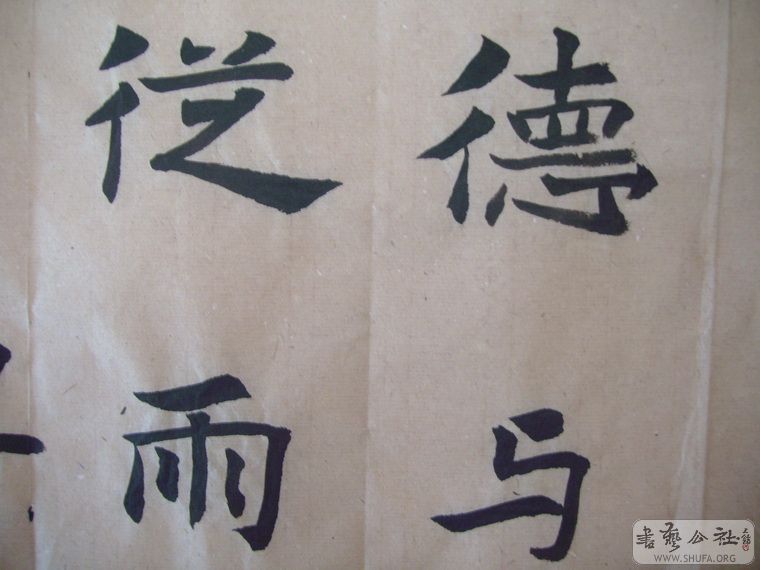 德与
従雨
書藝公社
WWW.SHUFA.ORG